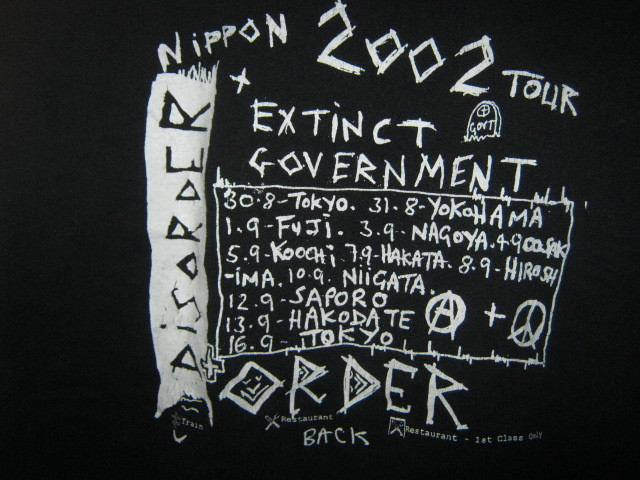 NiPPON 2002 TOUR
DiSORDER
+ EXTiNCT
GOVT
GOVERNMENT
30.8-TOKYO. 31.8-YOKOHAMA
1.9-FUJi. 3.9-NAGOYA.4.9
5.9-KOOCHi 7.9-HAKATA. 8.9-HIROSH
-iMA. 10.9. NiiGATA.
12.9-SAPORO
13.9-HAKODATE A +
16.9-TOKYO
ORDER
Train
Restaurant
BACK
Restaurant - 1st Class Only